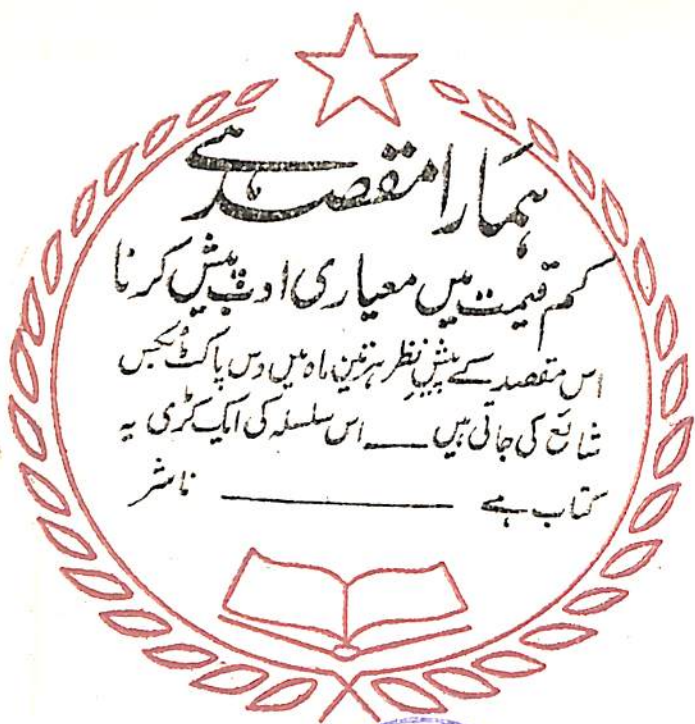 ہمارا مقصد ہے
کم قیمت میں معیاری ادب پیش کرنا
اس مقصد کے پیشِ نظر ہر تین ماہ میں دس پاکٹ بکس
شائع کی جاتی ہیں ــــ اس سلسلہ کی ایک کڑی یہ
کتاب ہے ــــــــــــ ناشر